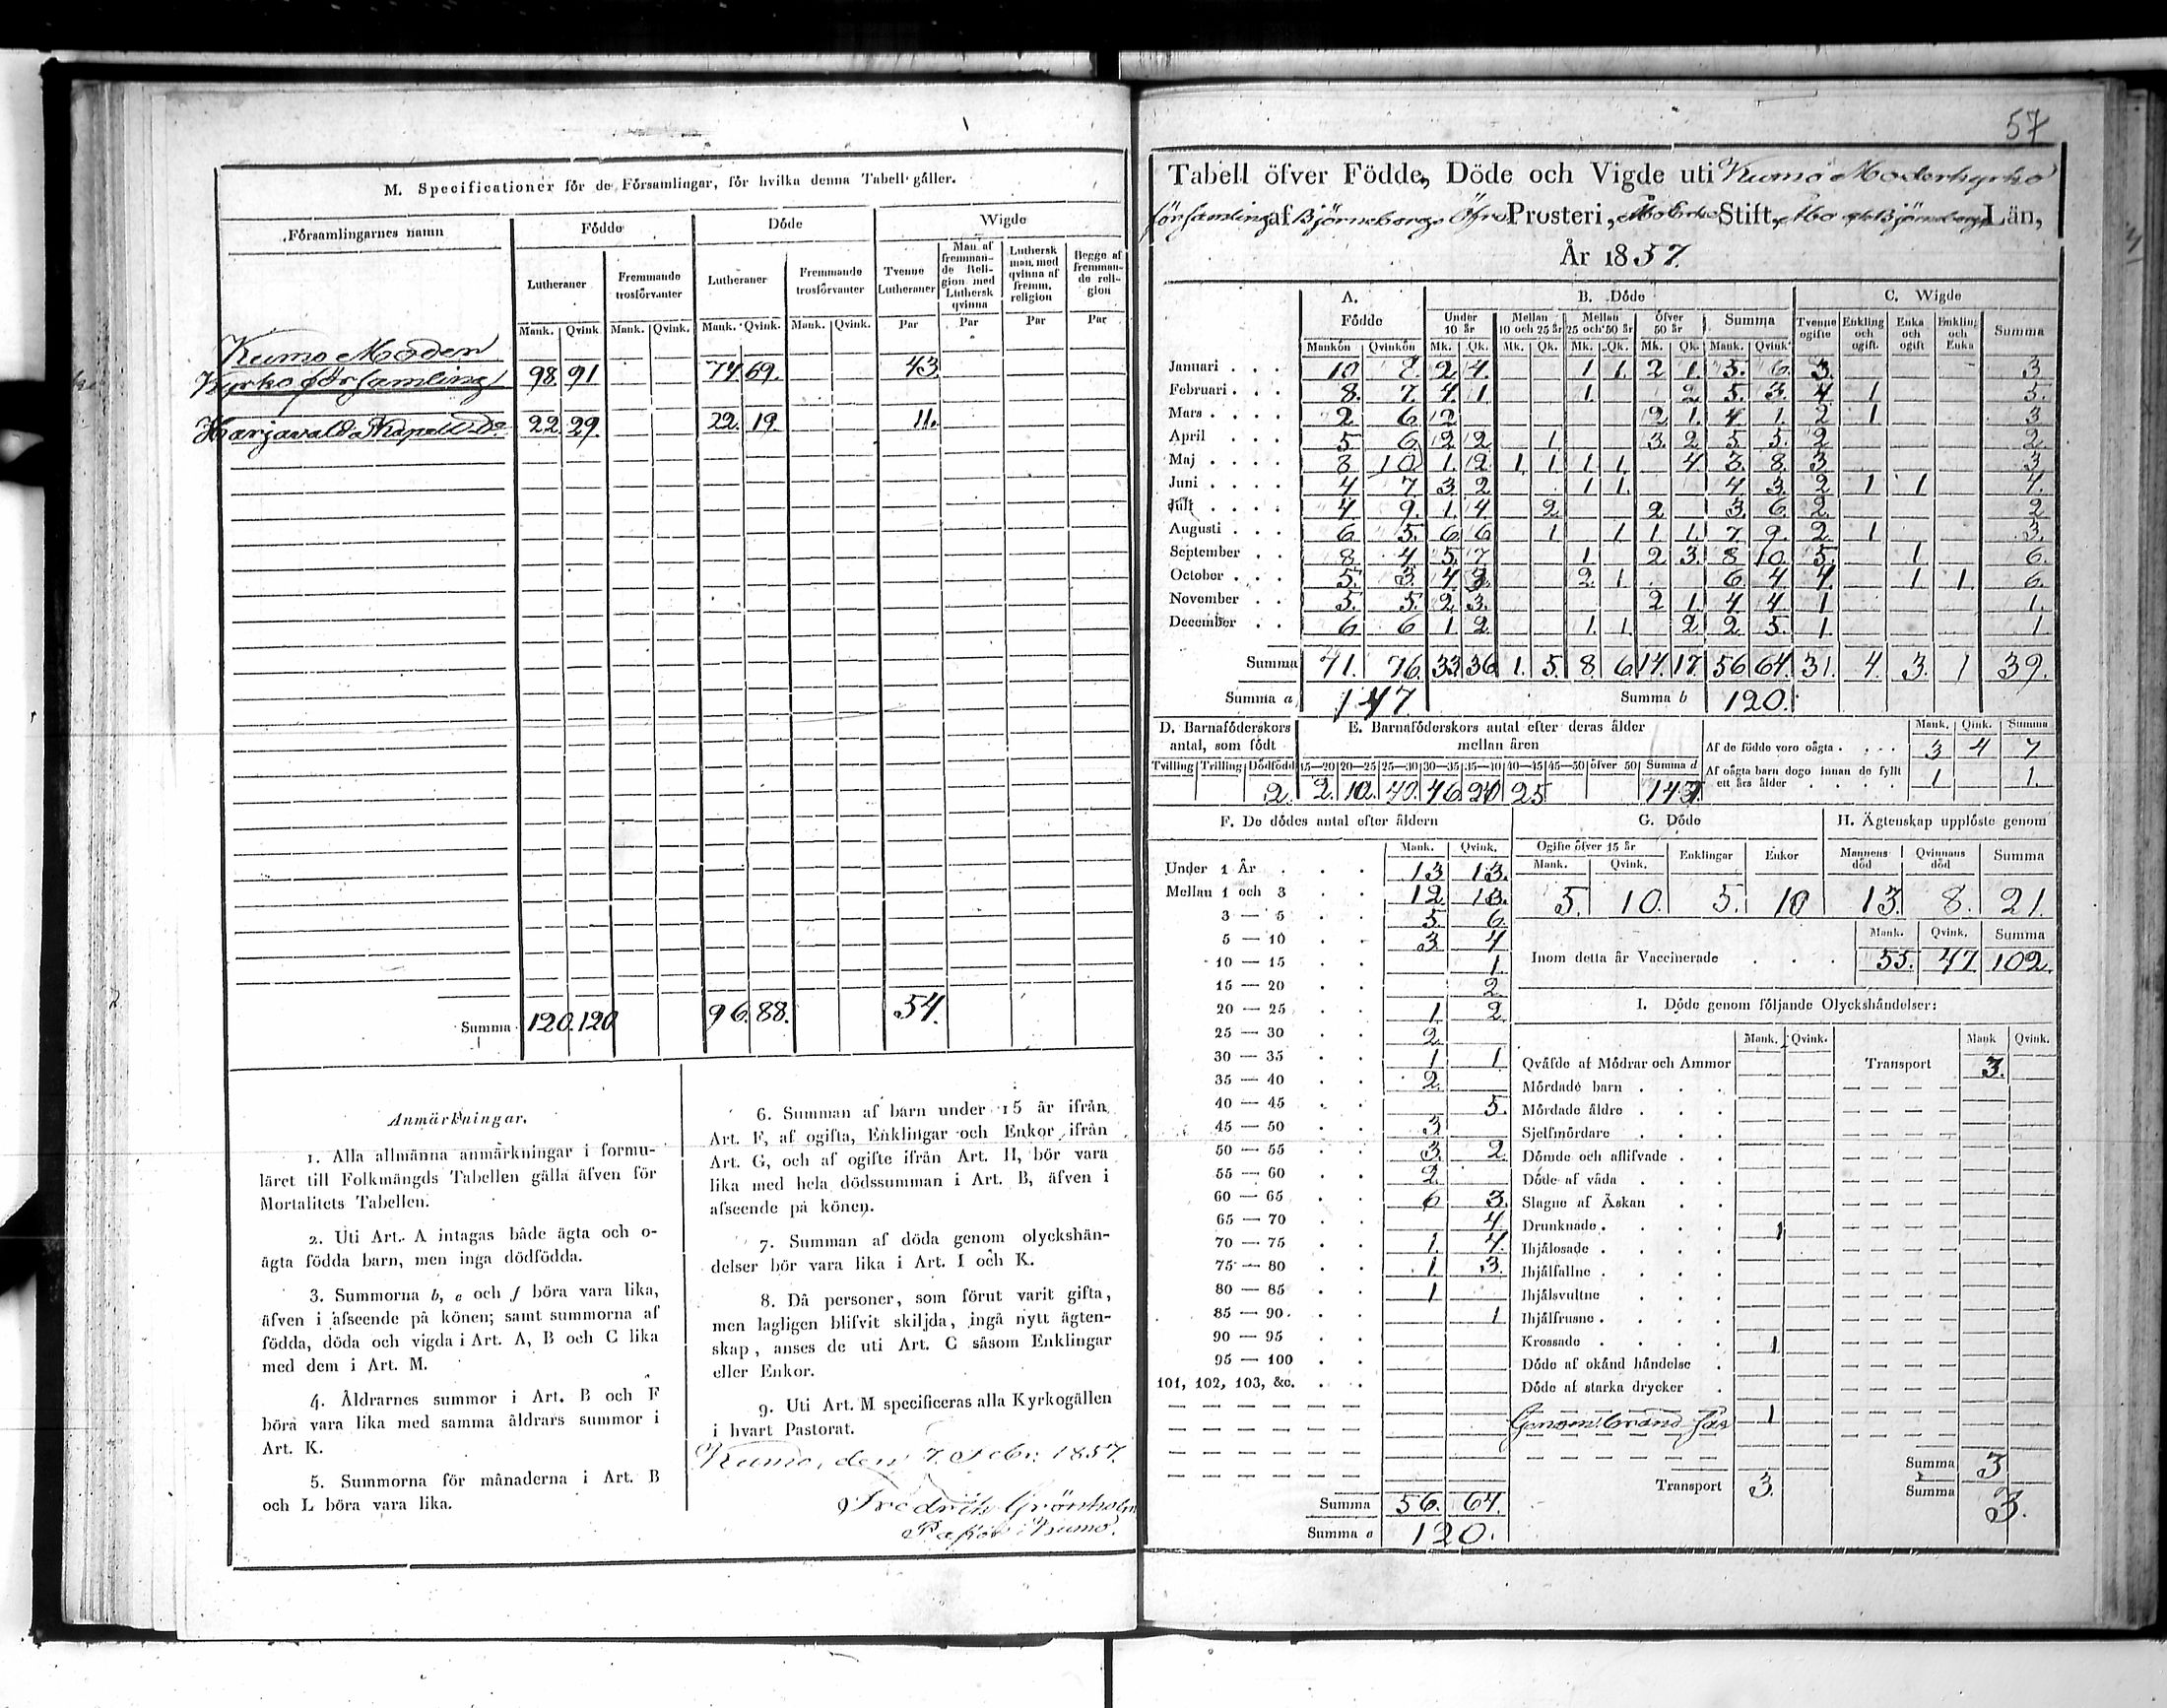 M. Specificationer för de Församlingar, för hvilka denna Tabell gäller.
Församlingarnes namn | Födde | Döde | Wigde
Lutheraner | Fremmande trosförvanter | Lutheraner | Fremmande trosförvanter | Tvenne Lutheraner | Man af fremmande Religion med Luthersk qvinna | Luthersk man med qvinna af fremm. religion | Begge af fremmande religion
Mank. | Qvink. | Mank. | Qvink. | Mank. | Qvink. | Mank. | Qvink. | Par | Par | Par | Par
Kumo Moder
Kyrko församling 98 91 74 69. 43
Harjavalda Kapell Do 22 29. 22. 19. 11.
Summa 120. 120 96. 88. 54.
Anmärkningar.
1. Alla allmänna anmärkningar i formu-
läret till Folkmängds Tabellen gälla äfven för
Mortalitets Tabellen.
2. Uti Art. A intagas både ägta och o-
ägta födda barn, men inga dödfödda.
3. Summorna b, e och f böra vara lika,
äfven i afseende på könen; samt summorna af
födda, döda och vigda i Art. A, B och C lika
med dem i Art. M.
4. Åldrarnes summor i Art. B och F
böra vara lika med samma åldrars summor i
Art. K.
5. Summorna för månaderna i Art. B
och L böra vara lika.
6. Summan af barn under 15 år ifrån
Art. F, af ogifta, Enklingar och Enkor ifrån
Art. G, och af ogifte ifrån Art. H, bör vara
lika med hela dödssumman i Art. B, äfven i
afseende på könen.
7. Summan af döda genom olyckshän-
delser bör vara lika i Art. I och K.
8. Då personer, som förut varit gifta,
men lagligen blifvit skiljda, ingå nytt ägten-
skap, anses de uti Art. C såsom Enklingar
eller Enkor.
9. Uti Art. M specificeras alla Kyrkogällen
i hvart Pastorat.
Kumo, den 7. Febr. 1857.
Fredrik Grönholm
Kumo.
57
Tabell öfver Födde, Döde och Vigde uti Kumo Moderkyrko
församling af Björneborgs Öfre Prosteri, Åbo Erke Stift, Åbo och Björneborgs Län,
År 1857.
A. Födde | B. Döde | C. Wigde
Under 10 år | Mellan 10 och 25 år | Mellan 25 och 50 år | Öfver 50 år | Summa | Tvenne ogifte | Enkling och ogift. | Enka och ogift | Enkling och Enka | Summa
Mankön | Qvinkön | Mk. | Qk. | Mk. | Qk. | Mk. | Qk. | Mk. | Qk. | Mank. | Qvink.
Januari 10 8. 2 4. 1 1. 2 1. 5. 6. 3. 3
Februari 8. 7. 4. 1 1. 2 5. 3. 4 1 5.
Mars 2. 6. 2 2 1. 4. 1. 2 1 3
April 5 6. 2 2 1 3. 2 5 5. 2 2.
Maj 8 10 1. 2 1. 1. 1 1. 4 3. 8. 3 3
Juni 4 7 3 2 1 1. 4 3. 2 1 1 4.
Juli 4 9. 1. 4 2 2 3. 6. 2 2
Augusti 6 5. 6 6 1 1 1 1. 7 9. 2 1 3.
September 8 4 5. 7 1. 2 3. 8 10. 5. 1 6.
October 5. 3. 4 3. 2. 1. 6. 4 4. 1 1. 6.
November 5. 5. 2 3. 2 1. 4 4 1 1.
December 6 6 1. 2 1. 1. 2 2 5. 1. 1
Summa 71. 76. 33 36 1. 5. 8 6 14. 17. 56 64. 31. 4. 3. 1 39.
Summa a 147. Summa b 120.
D. Barnaföderskors antal, som födt
Tvilling | Trilling | Dödfödd
2.
E. Barnaföderskors antal efter deras ålder mellan åren
15—20 | 20—25 | 25—30 | 30—35 | 35—40 | 40—45 | 45—50 | öfver 50 | Summa d
2. 10. 40. 46. 20 25
Mank. | Qink. | Summa
Af de födde voro oägta 3 4 7
Af oägta barn dogo innan de fyllt ett års ålder 1 1.
F. De dödes antal efter åldern
Mank. | Qvink.
Under 1 År 13 13.
Mellan 1 och 3 12 13.
3 — 5 5. 6.
5 — 10 3. 4
10 — 15 1.
15 — 20 2.
20 — 25 1 2
25 — 30 2
30 — 35 1 1
35 — 40 2.
40 — 45 5.
45 — 50 3
50 — 55 3. 2
55 — 60 2.
60 — 65 6 3.
65 — 70 4
70 — 75 1. 4.
75 — 80 1. 3.
80 — 85 1
85 — 90 1
90 — 95
95 — 100
101, 102, 103, &c.
Summa 56. 64.
Summa e 120.
G. Döde
Ogifte öfver 15 år | Enklingar | Enkor
Mank. | Qvink.
5. 10. 5. 10
H. Ägtenskap upplöste genom
Mannens död | Qvinnans död | Summa
13. 8. 21.
Mank. | Qvink. | Summa
Inom detta år Vaccinerade 55. 47 102.
I. Döde genom följande Olyckshändelser:
Mank. | Qvink. | Mank | Qvink.
Qväfde af Mödrar och Ammor Transport 3.
Mördade barn
Mördade äldre
Sjelfmördare
Dömde och aflifvade
Döde af våda
Slagne af Åskan
Drunknade 1
Ihjälosade
Ihjälfallne
Ihjälsvultne
Ihjälfrusne
Krossade 1
Döde af okänd händelse
Döde af starka drycker
Genom bränd 1
Summa 3
Transport 3. Summa 3.